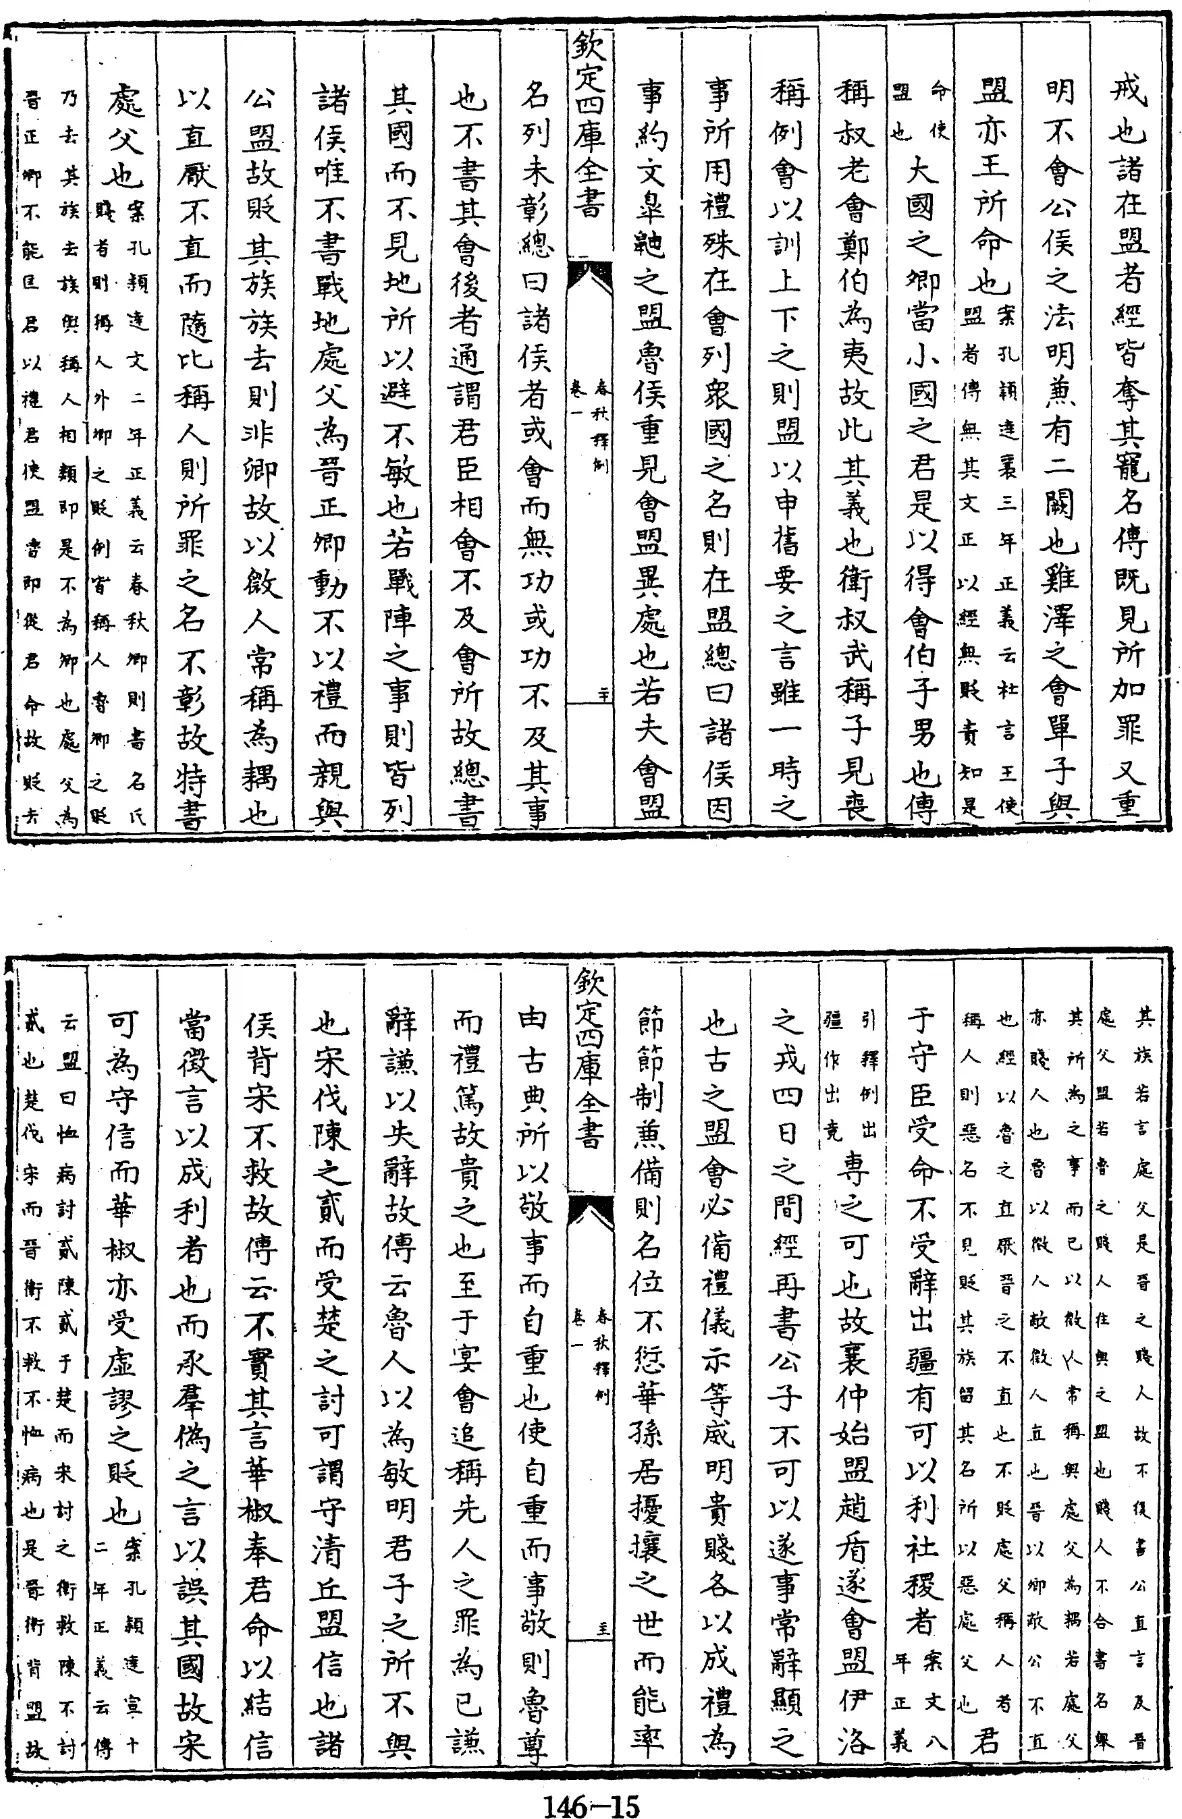 戒也諸在盟者經皆奪其寵名傳既見所加罪又重
明不會公侯之法明蕭有二闕也雞澤之會單子與
盟亦王所命也案孔穎達襄三年正義云杜言王使
盟者傳無其文正以經無貶責知是
命使
盟也
大國之卿當小國之君是以得會伯子男也傳
稱叔老會鄭伯為夷故此其義也衛叔武稱子見喪
稱例會以訓上下之則盟以申舊要之言雖一時之
事所用禮殊在會列衆國之名則在盟總曰諸侯因
事約文臯鼬之盟魯侯重見會盟異處也若夫會盟
欽定四庫全書
春秋釋例
卷一
名列未彰總曰諸侯者或會而無功或功不及其事
也不書其會後者通謂君臣相會不及會所故總書
其國而不見地所以避不敏也若戰陣之事則皆列
諸侯唯不書戰地處父為晉正卿動不以禮而親與
公盟故貶其族族去則非卿故以微人常稱為耦也
以直厭不直而隨比稱人則所罪之名不彰故特書
處父也案孔穎達文二年正義云春秋卿則書名氏
賤者則稱人外卿之貶例皆稱人魯卿之貶
乃去其族去族與稱人相類即是不為卿也處父為
晉正卿不能匡君以禮君使盟魯即從君命故貶去
其族若言處父是晉之賤人故不復書公直言及晉
處父盟若魯之賤人往與之盟也賤人不合書名舉
其所為之事而已以微人常稱與處父為耦若處父
亦賤人也魯以微人敵微人直也晉以卿敵公不直
也經以魯之直厭晉之不直也不貶處父稱人者
稱人則惡名不見貶其族留其名所以惡處父也
君
子守臣受命不受辭出疆有可以利社稷者案文八
年正義
引釋例出
疆作出竟
專之可也故襄仲始盟趙盾遂會盟伊洛
之戎四日之間經再書公子不可以遂事常辭顯之
也古之盟會必備禮儀示等威明貴賤各以成禮為
節節制蕭備則名位不愆華孫居擾攘之世而能率
欽定四庫全書
春秋釋例
卷一
由古典所以敬事而自重也使自重而事敬則魯尊
而禮篤故貴之也至于宴會追稱先人之罪為已謙
辭謙以失辭故傳云魯人以為敏明君子之所不與
也宋伐陳之貳而受楚之討可謂守清丘盟信也諸
侯背宋不救故傳云不實其言華椒奉君命以結信
當徵言以成利者也而承羣偽之言以誤其國故宋
可為守信而華椒亦受虛謬之貶也案孔穎達宣十
二年正義云傳
云盟曰恤病討貳陳貳于楚而宋討之衛救陳不討
貳也楚伐宋而晉衛不救不恤病也是晉衛背盟故
146-15